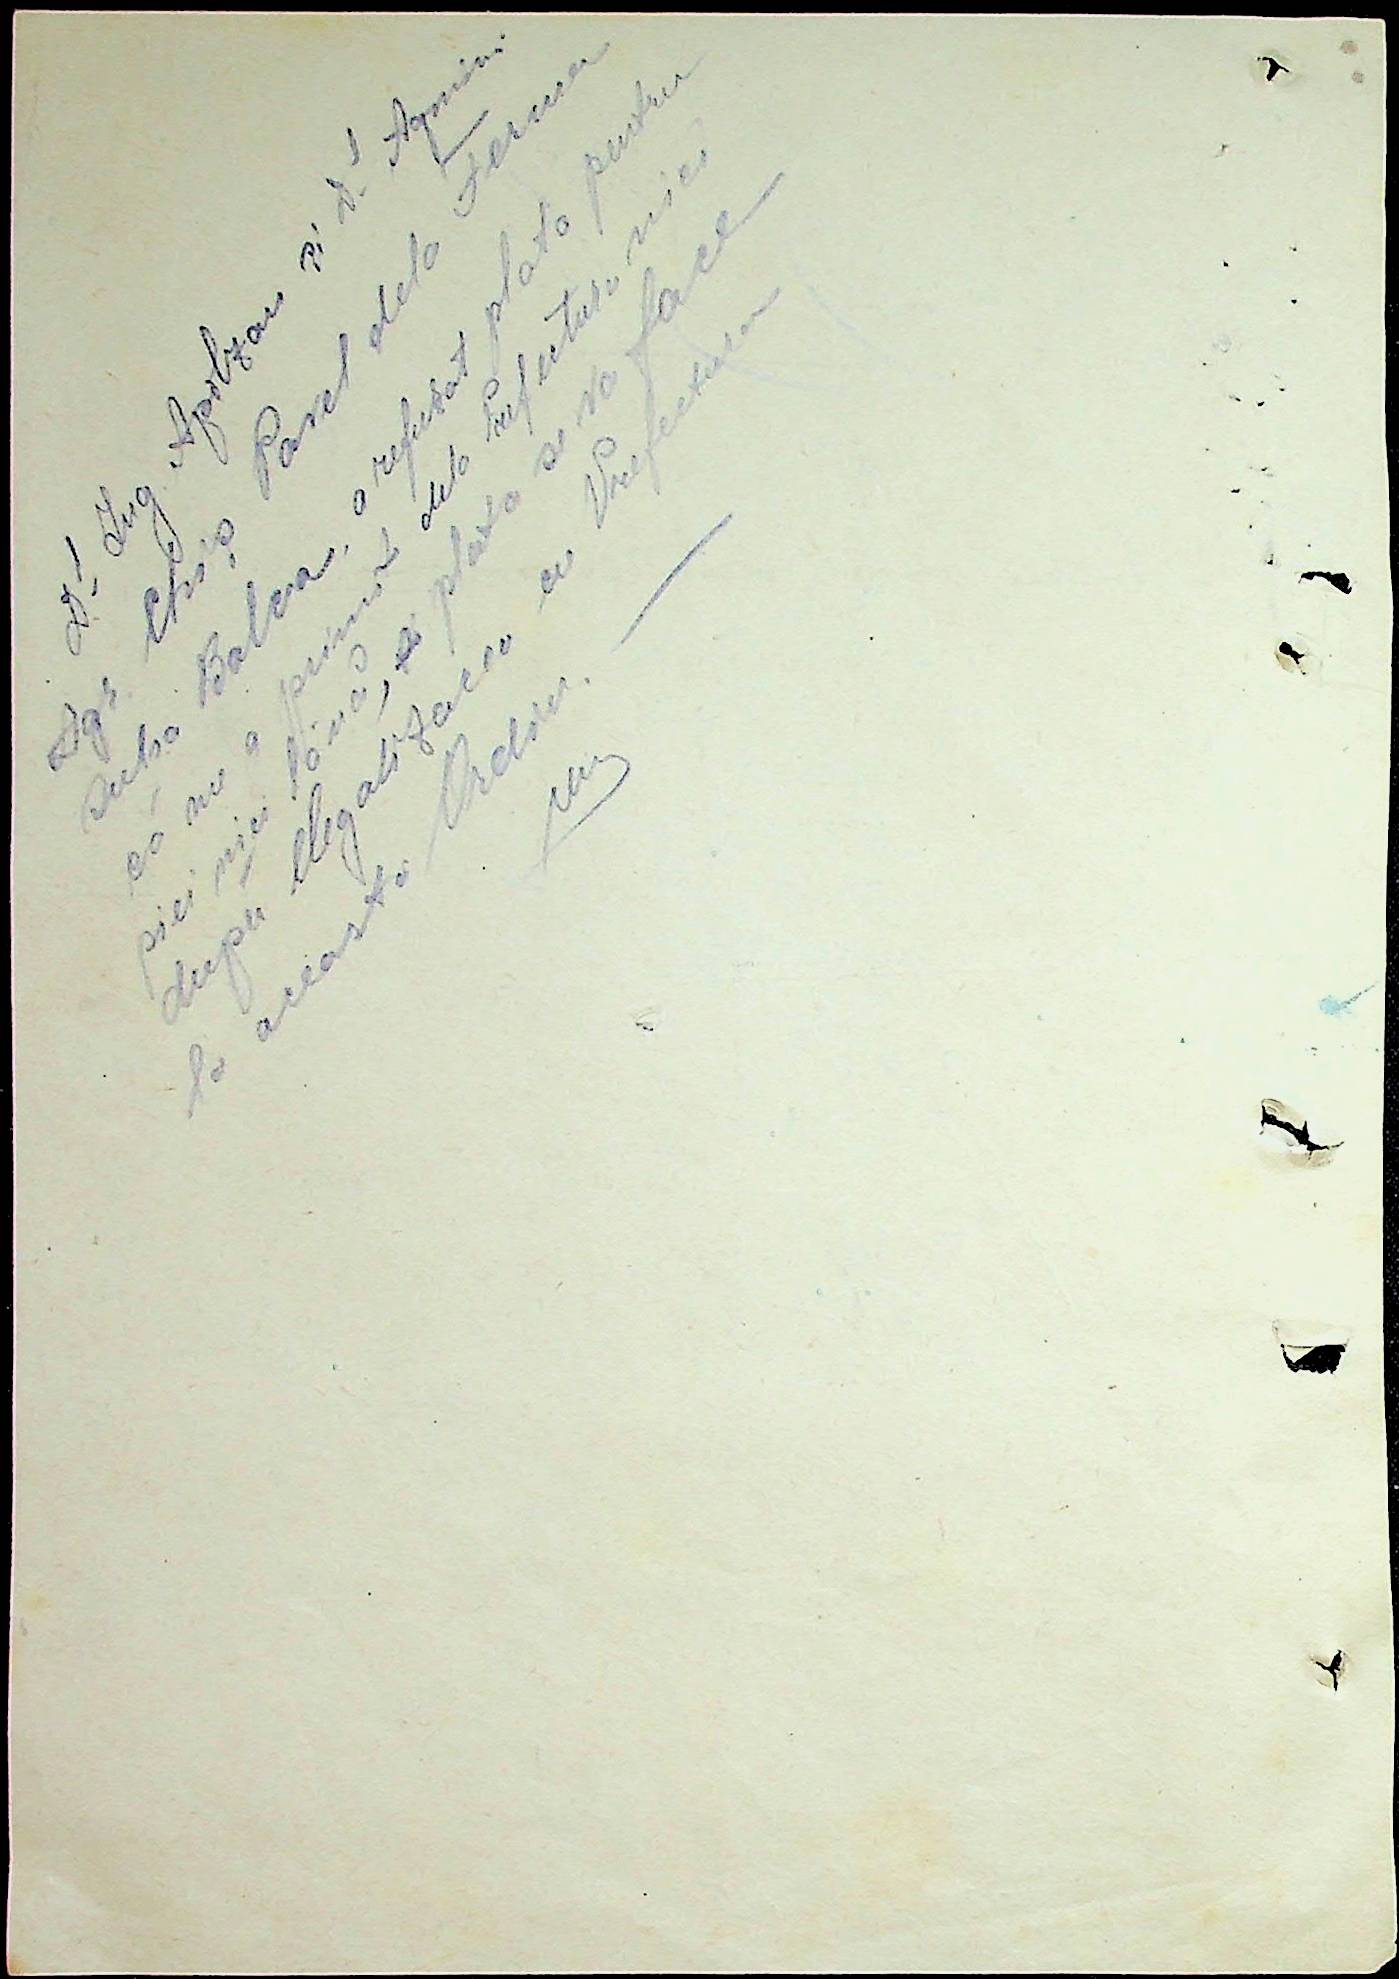 D-l Ing. Apolzan și D-l
Agr. Chira Pavel dela Ferma
Balcan, a refuzat plata pentru
că nu a primit dela Prefectura nici
piei nici lână, și plata se va face
după legalizarea cu Prefectura
la aceasta Ordin.